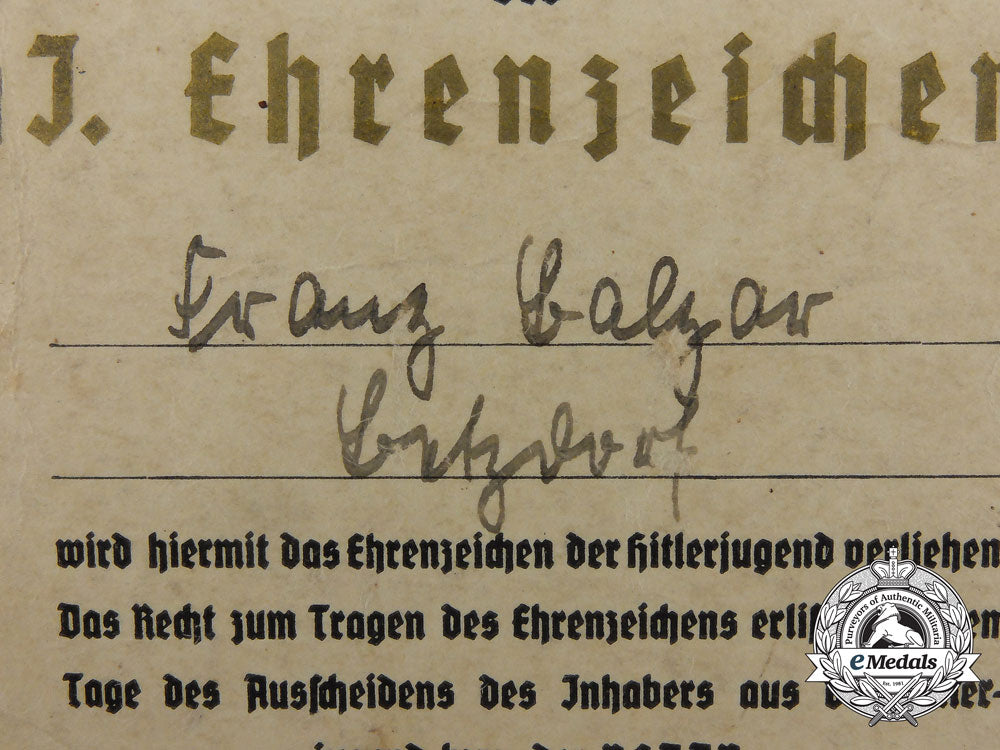 J. Ehrenzeichen
Franz Balzar
Betzdorf
wird hiermit das Ehrenzeichen der Hitlerjugend verliehen
Das Recht zum Tragen des Ehrenzeichens
Tage des Ausscheidens des Inhabers aus
Purveyors of Authentic Militaria
eMedals
Est. 1981